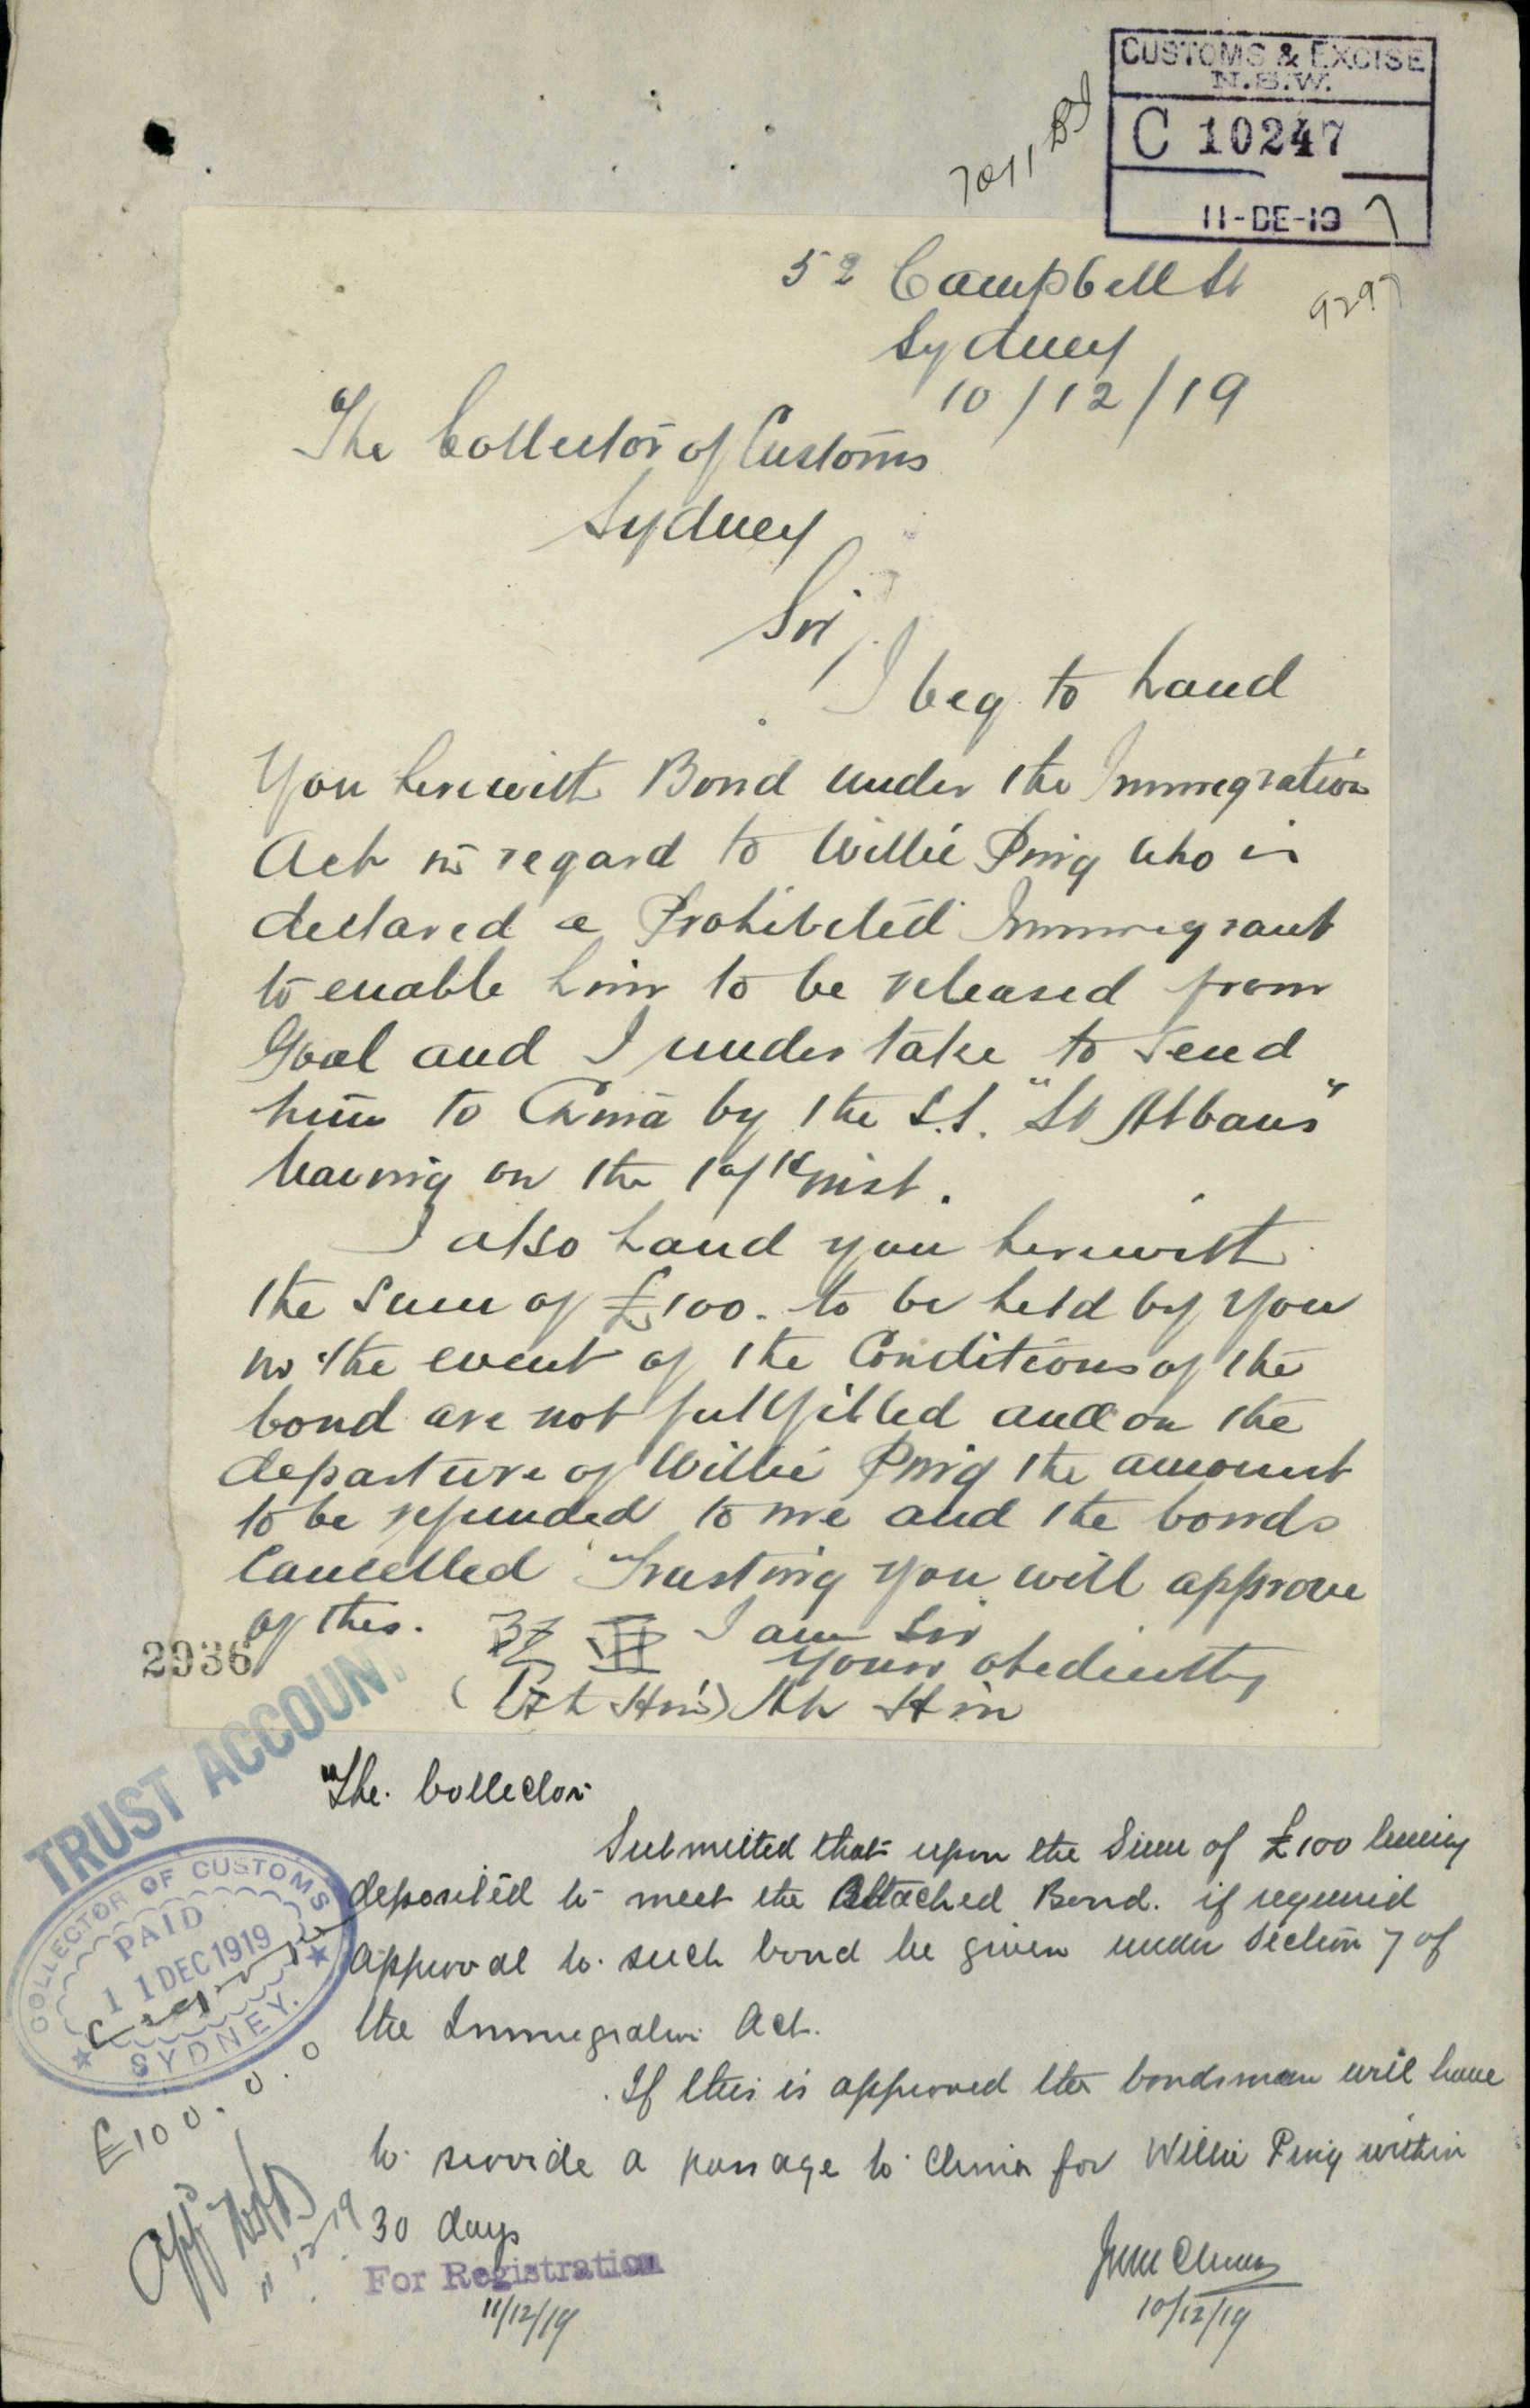 CUSTOMS & EXCISE
N.S.W.
C 10247
11-DE-19
7
9297
52 Campbell St
Sydney
10/12/19
The Collector of Customs
Sydney
Sir,
I beg to hand
You herewith Bond under the Immigration
Act in regard to Willie Ping who is
declared a Prohibited Immigrant
to enable him to be released from
Goal and I undertake to send
him to China by the S.S. "St Albans"
leaving on the inst.
I also hand you herewith
the sum of £100. to be held by you
in the event of the Conditions of the
bond are not fullfilled and on the
departure of Willie Ping the amount
to be refunded to me and the bonds
Cancelled Trusting you will approve
of this. I am Sir
Yours obediently
(Ah Hin) Ah Hin
2936
TRUST ACCOUNT
The Collector
Submitted that upon the Sum of £100 being
deposited to meet the attached Bond. if required
approval to such bond be given under Section 7 of
the Immigration Act.
If this is approved the bondsman will have
to provide a passage to China for Willie Ping within
30 days
COLLECTOR OF CUSTOMS
PAID
11 DEC 1919
SYDNEY.
£100.0.0
App'd
11 12 19
For Registration
11/12/19
10/12/19